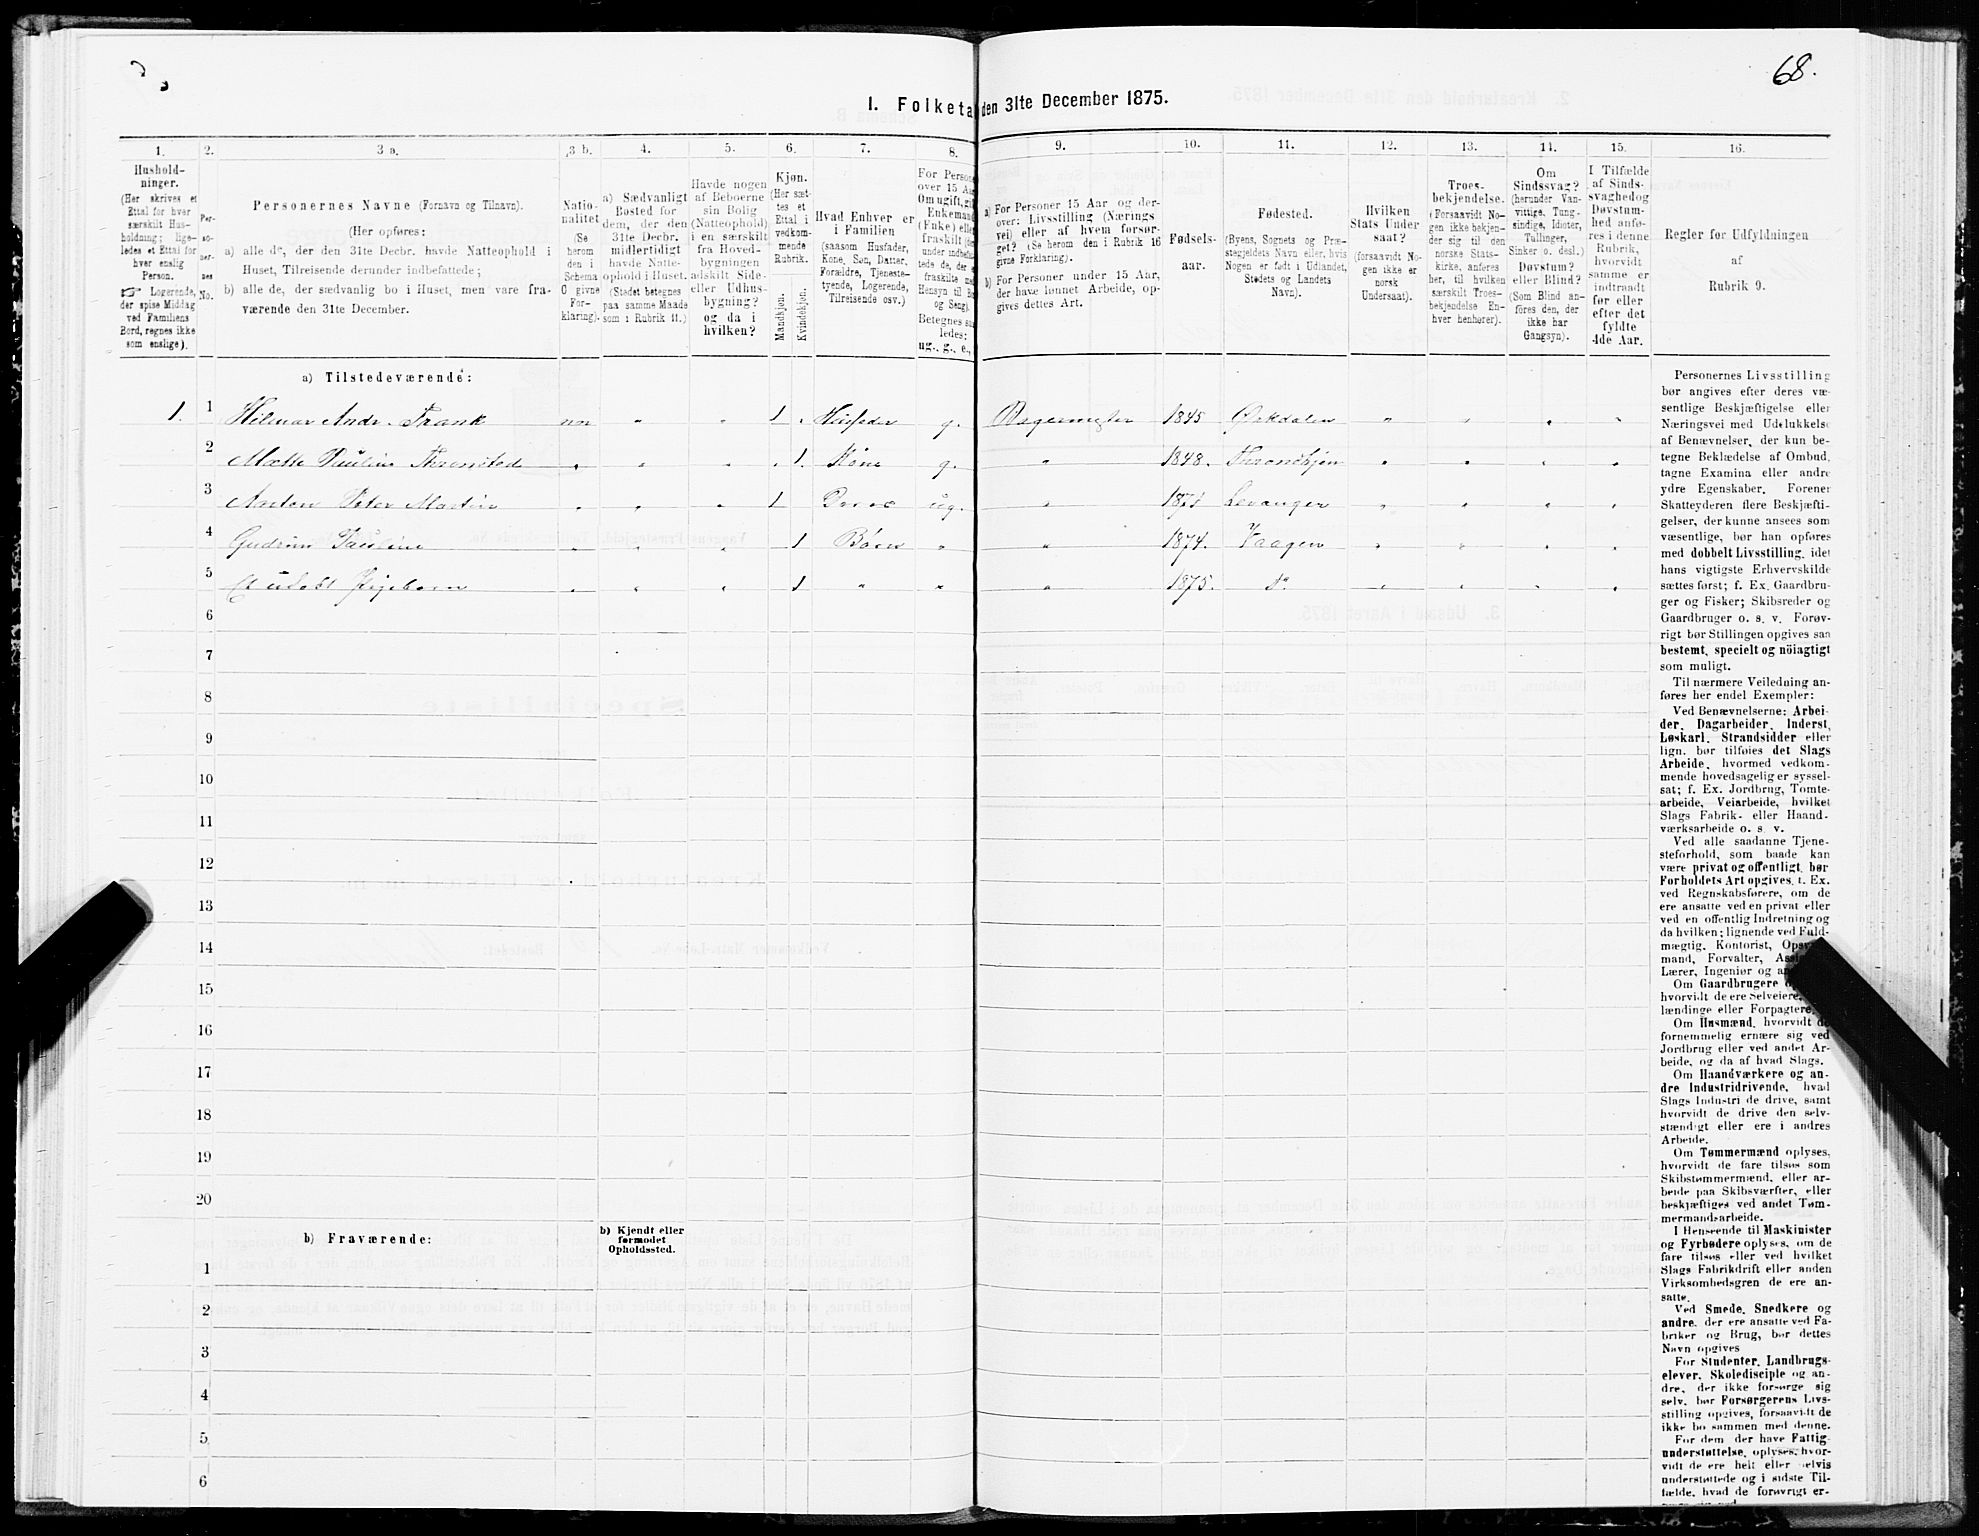 68.
1. Folketa den 31te December 1875.
1. 2. 3 a. 3 b. 4. 5. 6. 7. 8. 9. 10. 11. 12. 13. 14. 15. 16.
Hushold-
ninger.
(Her skrives et
Ettal for hver
særskilt Hus-
holdning; lige-
ledes et Ettal for
hver enslig
Person.
Logerende,
der spise Middag
ved Familiens
Bord, regnes ikke
som enslige).
Per-
so-
ner-
nes
No.
Personernes Navne (Fornavn og Tilnavn).
(Her opføres:
a) alle de, der den 31te Decbr. havde Natteophold i
Huset, Tilreisende derunder indbefattede;
b) alle de, der sædvanlig bo i Huset, men vare fra-
værende den 31te December.
Natio-
nalitet
(Se
herom
den i
Schema
C givne
For-
klaring).
a) Sædvanligt
Bosted for
dem, der den
31te Decbr.
midlertidigt
havde Natte-
ophold i Huset.
(Stedet betegnes
paa samme Maade
som i Rubrik 11.)
Havde nogen
af Beboerne
sin Bolig
(Natteophold)
i en særskilt
fra Hoved-
bygningen
adskilt Side-
eller Udhus-
bygning?
og da i
hvilken?
Kjøn.
(Her sæt-
tes et
Ettal i
vedkom-
mende
Rubrik.
Mandkjøn.
Kvindekjøn.
Hvad Enhver er
i Familien
(saasom Husfader,
Kone, Søn, Datter,
Forældre, Tjeneste-
tyende, Logerende,
Tilreisende osv.)
For Persone
over 15 Aa
Om ugift, gif
Enkemand
(Enke) elle
fraskilt (der
under indbefat
tede de, der e
fraskilte med
Hensyn til Bo
og Seng).
Betegnes saa
ledes:
ug., g., e.,
a) For Personer 15 Aar og der-
over: Livsstilling (Nærings
vei) eller af hvem forsør-
get? (Se herom den i Rubrik 16
givne Forklaring).
b) For Personer under 15 Aar,
der have lønnet Arbeide, op-
gives dettes Art.
Fødsels-
aar.
Fødested.
(Byens, Sognets og Præ-
stegjeldets Navn eller, hvis
Nogen er født i Udlandet,
Stedets og Landets
Navn).
Hvilken
Stats Under
saat?
(forsaavidt No-
gen ikke er
norsk
Undersaat).
Troes-
bekjendelse.
(Forsaavidt No-
gen ikke bekjen-
der sig til den
norske Stats-
kirke, anføres
her, til hvilken
særskilt Troes-
bekjendelse En-
hver henhører).
Om
Sindssvag?
(herunder Van-
vittige, Tung-
sindige, Idioter,
Tullinger,
Sinker o. desl.)
Døvstum?
eller Blind?
(Som Blind an-
føres den, der
ikke har
Gangsyn).
I Tilfælde
af Sinds-
svaghed og
Døvstum-
hed anfø-
res i denne
Rubrik,
hvorvidt
samme er
indtraadt
før eller
efter det
fyldte
4de Aar.
Regler for Udfyldningen
af
Rubrik 9.
a) Tilstedeværende:
1. 1 Hilmar Andr. Frank nor " " 1 . Husfader g. Bagermester 1845 Ørkdalen " " " "
2 Mette Pauline Thronsted " " " . 1. Kone g. " 1848. Throndhjem " " " "
3 Anton Peter Martin " " " 1 ug. " Levanger " " " "
4 Gudrun Pauline " " " 1 Børn " " 1874. Vaagen " " " "
5 Et udøbt Pigebarn " " " 1 " " " 1875. Do " " " "
6
7
8
9
10
11
12
13
14
15
16
17
18
19
20
b) Fraværende:
b) Kjendt eller
formodet
Opholdssted.
1
2
3
4
5
6
Personernes Livsstilling
bør angives efter deres væ-
sentlige Beskjæftigelse eller
Næringsvei med Udelukkelse
af Benævnelser, der kun be-
tegne Beklædelse af Ombud,
tagne Examina eller andre
ydre Egenskaber. Forener
Skatteyderen flere Beskjæfti-
gelser, der kunne ansees som
væsentlige, bør han opføres
med dobbelt Livsstilling, idet
hans vigtigste Erhvervskilde
sættes først; f. Ex. Gaardbru-
ger og Fisker; Skibsreder og
Gaardbruger o. s. v. Forøv-
rigt bør Stillingen opgives saa
bestemt, specielt og nöiagtigt
som muligt.
Til nærmere Veiledning an-
føres her endel Exempler:
Ved Benævnelserne: Arbei-
der, Dagarbeider, Inderst,
Løskarl, Strandsidder eller
lign. bør tilføies det Slags
Arbeide, hvormed vedkom-
mende hovedsagelig er syssel-
sat; f. Ex. Jordbrug, Tømte-
arbeide, Veiarbeide, hvilket
Slags Fabrik- eller Haand-
værksarbeide o. s. v.
Ved alle saadanne Tjene-
steforhold, som baade kan
være privat og offentligt, bør
Forholdets Art opgives, t. Ex.
ved Regnskabsførere, om de
ere ansatte ved en privat eller
ved en offentlig Indretning og
da hvilken; lignende ved Fuld-
mægtig, Kontorist,
mand, Forvalter,
Lærer, Ingeniør og
Om Gaardbrugere
hvorvidt de ere Selveiere,
lændinge eller Forpagtere.
Om Husmænd, hvorvidt de
fornemmelig ernære sig ved
Jordbrug eller ved andet Ar-
beide, og da af hvad Slags.
Om Haandværkere og an-
dre Industridrivende, hvad
Slags Industri de drive, samt
hvorvidt de drive den selv-
stændigt eller ere i andres
Arbeide.
Om Tømmermænd oplyses,
hvorvidt de fare tilsøs som
Skibstømmermænd, eller ar-
beide paa Skibsværfter, eller
beskjæftiges ved andet Tøm-
mermandsarbeide.
I Henseende til Maskinister
og Fyrbødere oplyses, om de
fare tilsøs eller ved hvilket
Slags Fabrikdrift eller anden
Virksomhedsgren de ere an-
satte.
Ved Smede, Snedkere og
andre, der ere ansatte ved Fa-
briker og Brug, bør dettes
Navn opgives
For Studenter, Landbrugs-
elever, Skoledisciple og an-
dre, der ikke forsørge sig
selv, bør Forsørgerens Livs-
stilling opgives, forsaavidt de
ikke bo sammen med denne.
For dem, der have Fattig-
understøttelse, oplyses, hvor-
vidt de ere helt eller delvis
understøttede og i sidste Til-
fælde, hvad de forøvrigt er-